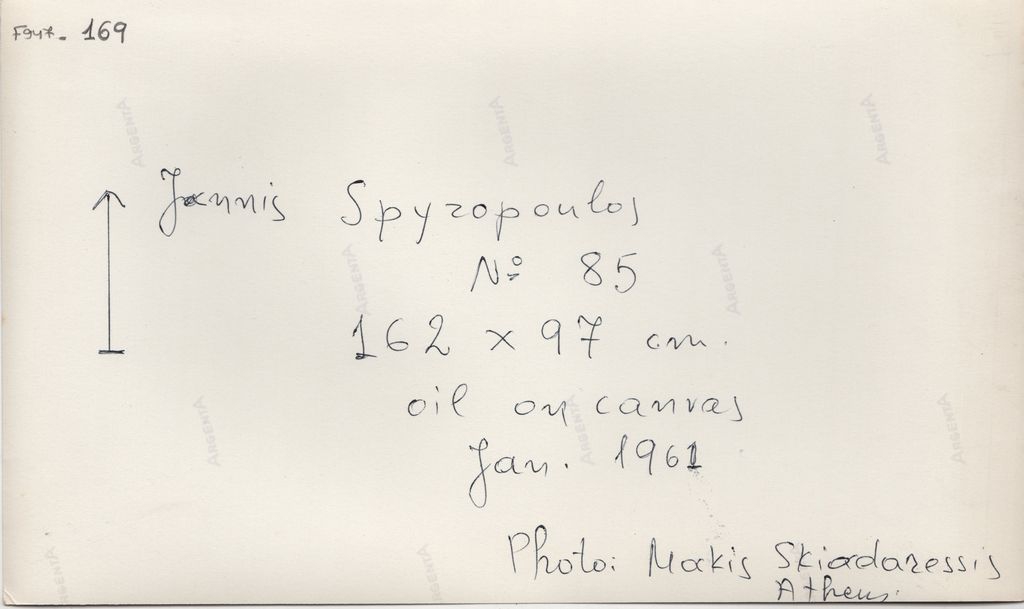 F947. 169
Jannis Spyropoulos
Nº 85
162 x 97 cm.
oil on canvas
Jan. 1961
Photo: Makis Skiadaressis
Athens.
ARGENTA
ARGENTA
ARGENTA
ARGENTA
ARGENTA
ARGENTA
ARGENTA
ARGENTA
ARGENTA
ARGENTA